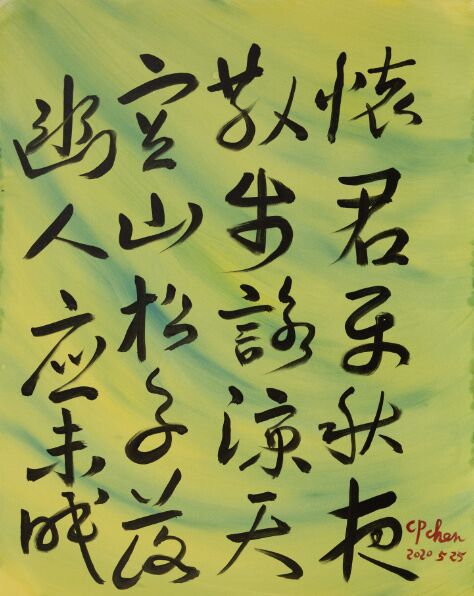 懷君属秋夜
散步詠涼天
空山松子落
幽人应未眠
CPchen
2020 5 25